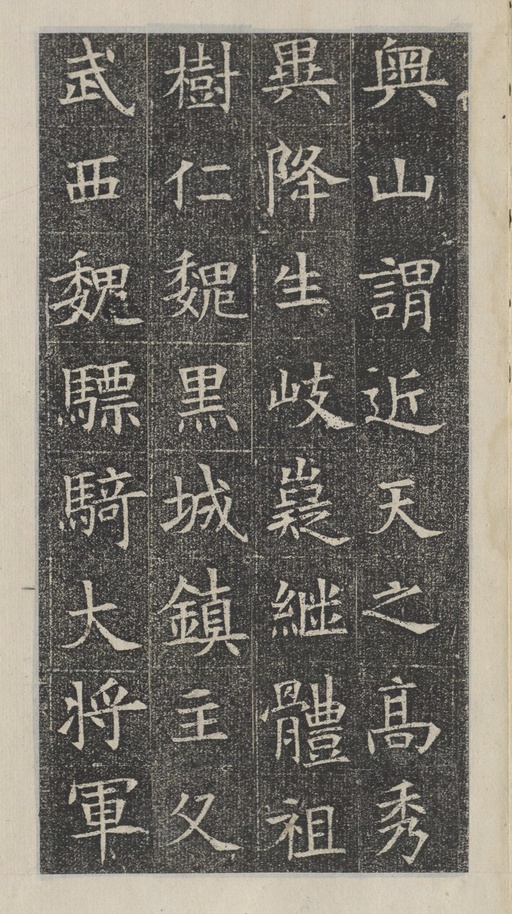 奥山謂近天之高秀
異降生岐嶷繼體祖
樹仁魏黑城鎮主父
武西魏驃騎大將軍